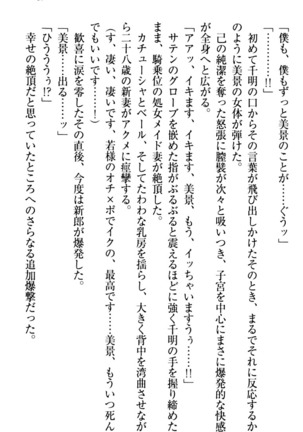 「僕、僕もずっと美景のことが……ぐうッ」
初めて千明の口からその言葉が飛び出しかけたそのとき、まるでそれに反応するか
のように美景の女体が弾けた。
己の純潔を奪った怒張に膣襞が次々と吸いつき、子宮を中心にまさに爆発的な快感
が全身へと広がる。
「アアッ、イキます、イキます、美景、もう、イッちゃいますうぅ……!!」
サテンのグローブを嵌めた指がぶるぶると震えるほどに強く千明の手を握り締めた
まま、騎乗位の処女メイド妻が絶頂した。
カチューシャとベール、そしてたわわな乳房を揺らし、大きく背中を湾曲させなが
ら二十八歳の新妻がアクメに痙攣する。
「す、凄い、凄いです、若様のオチ×ポでイクの、最高です……美景、もういつ死ん
でもいいです……！」
歓喜に涙を零したその直後、今度は新郎が爆発した。
「美景……出る……ッ」
「ひうううぅ!?」
幸せの絶頂だと思っていたところへのさらなる追加爆撃だった。